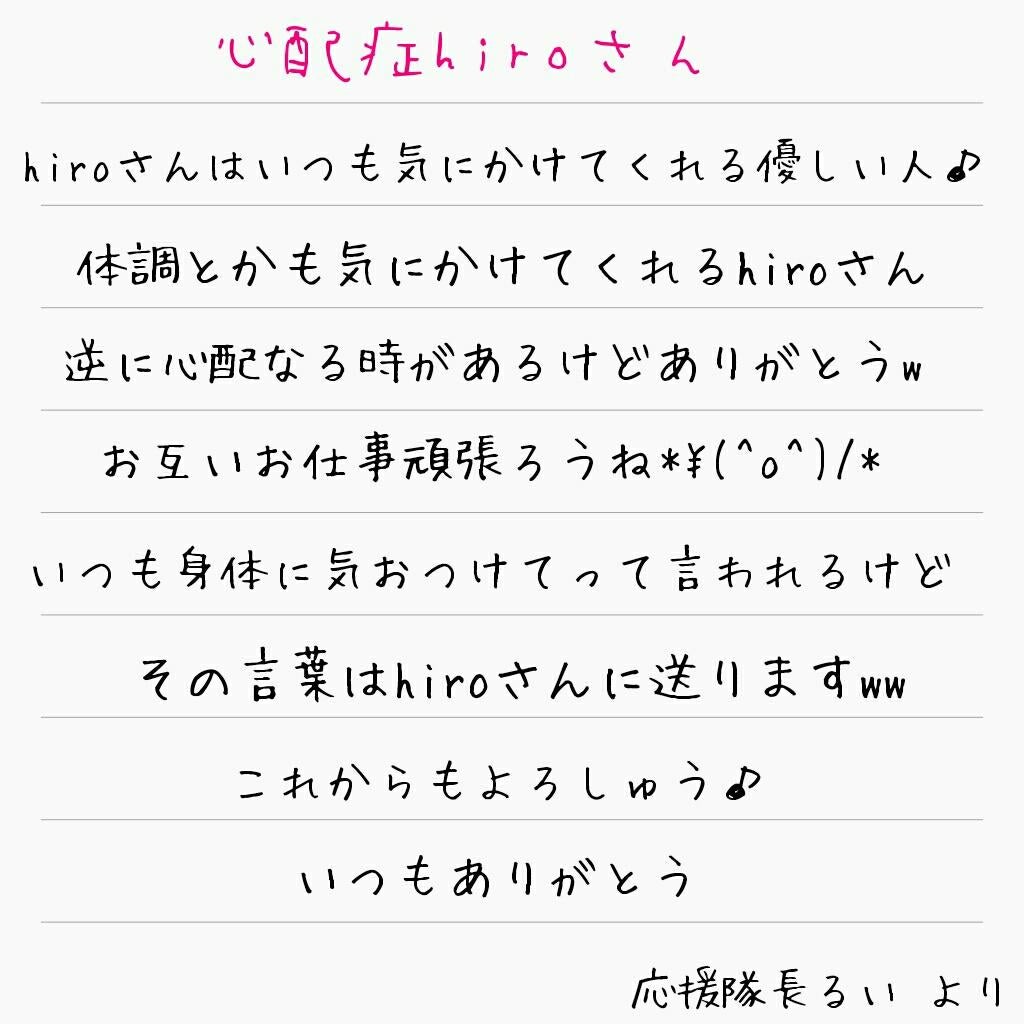 心配症hiroさん
hiroさんはいつも気にかけてくれる優しい人♪
体調とかも気にかけてくれるhiroさん
逆に心配なる時があるけどありがとうw
お互いお仕事頑張ろうね*¥(^o^)/*
いつも身体に気おつけてって言われるけど
その言葉はhiroさんに送りますww
これからもよろしゅう♪
いつもありがとう
応援隊長るい より